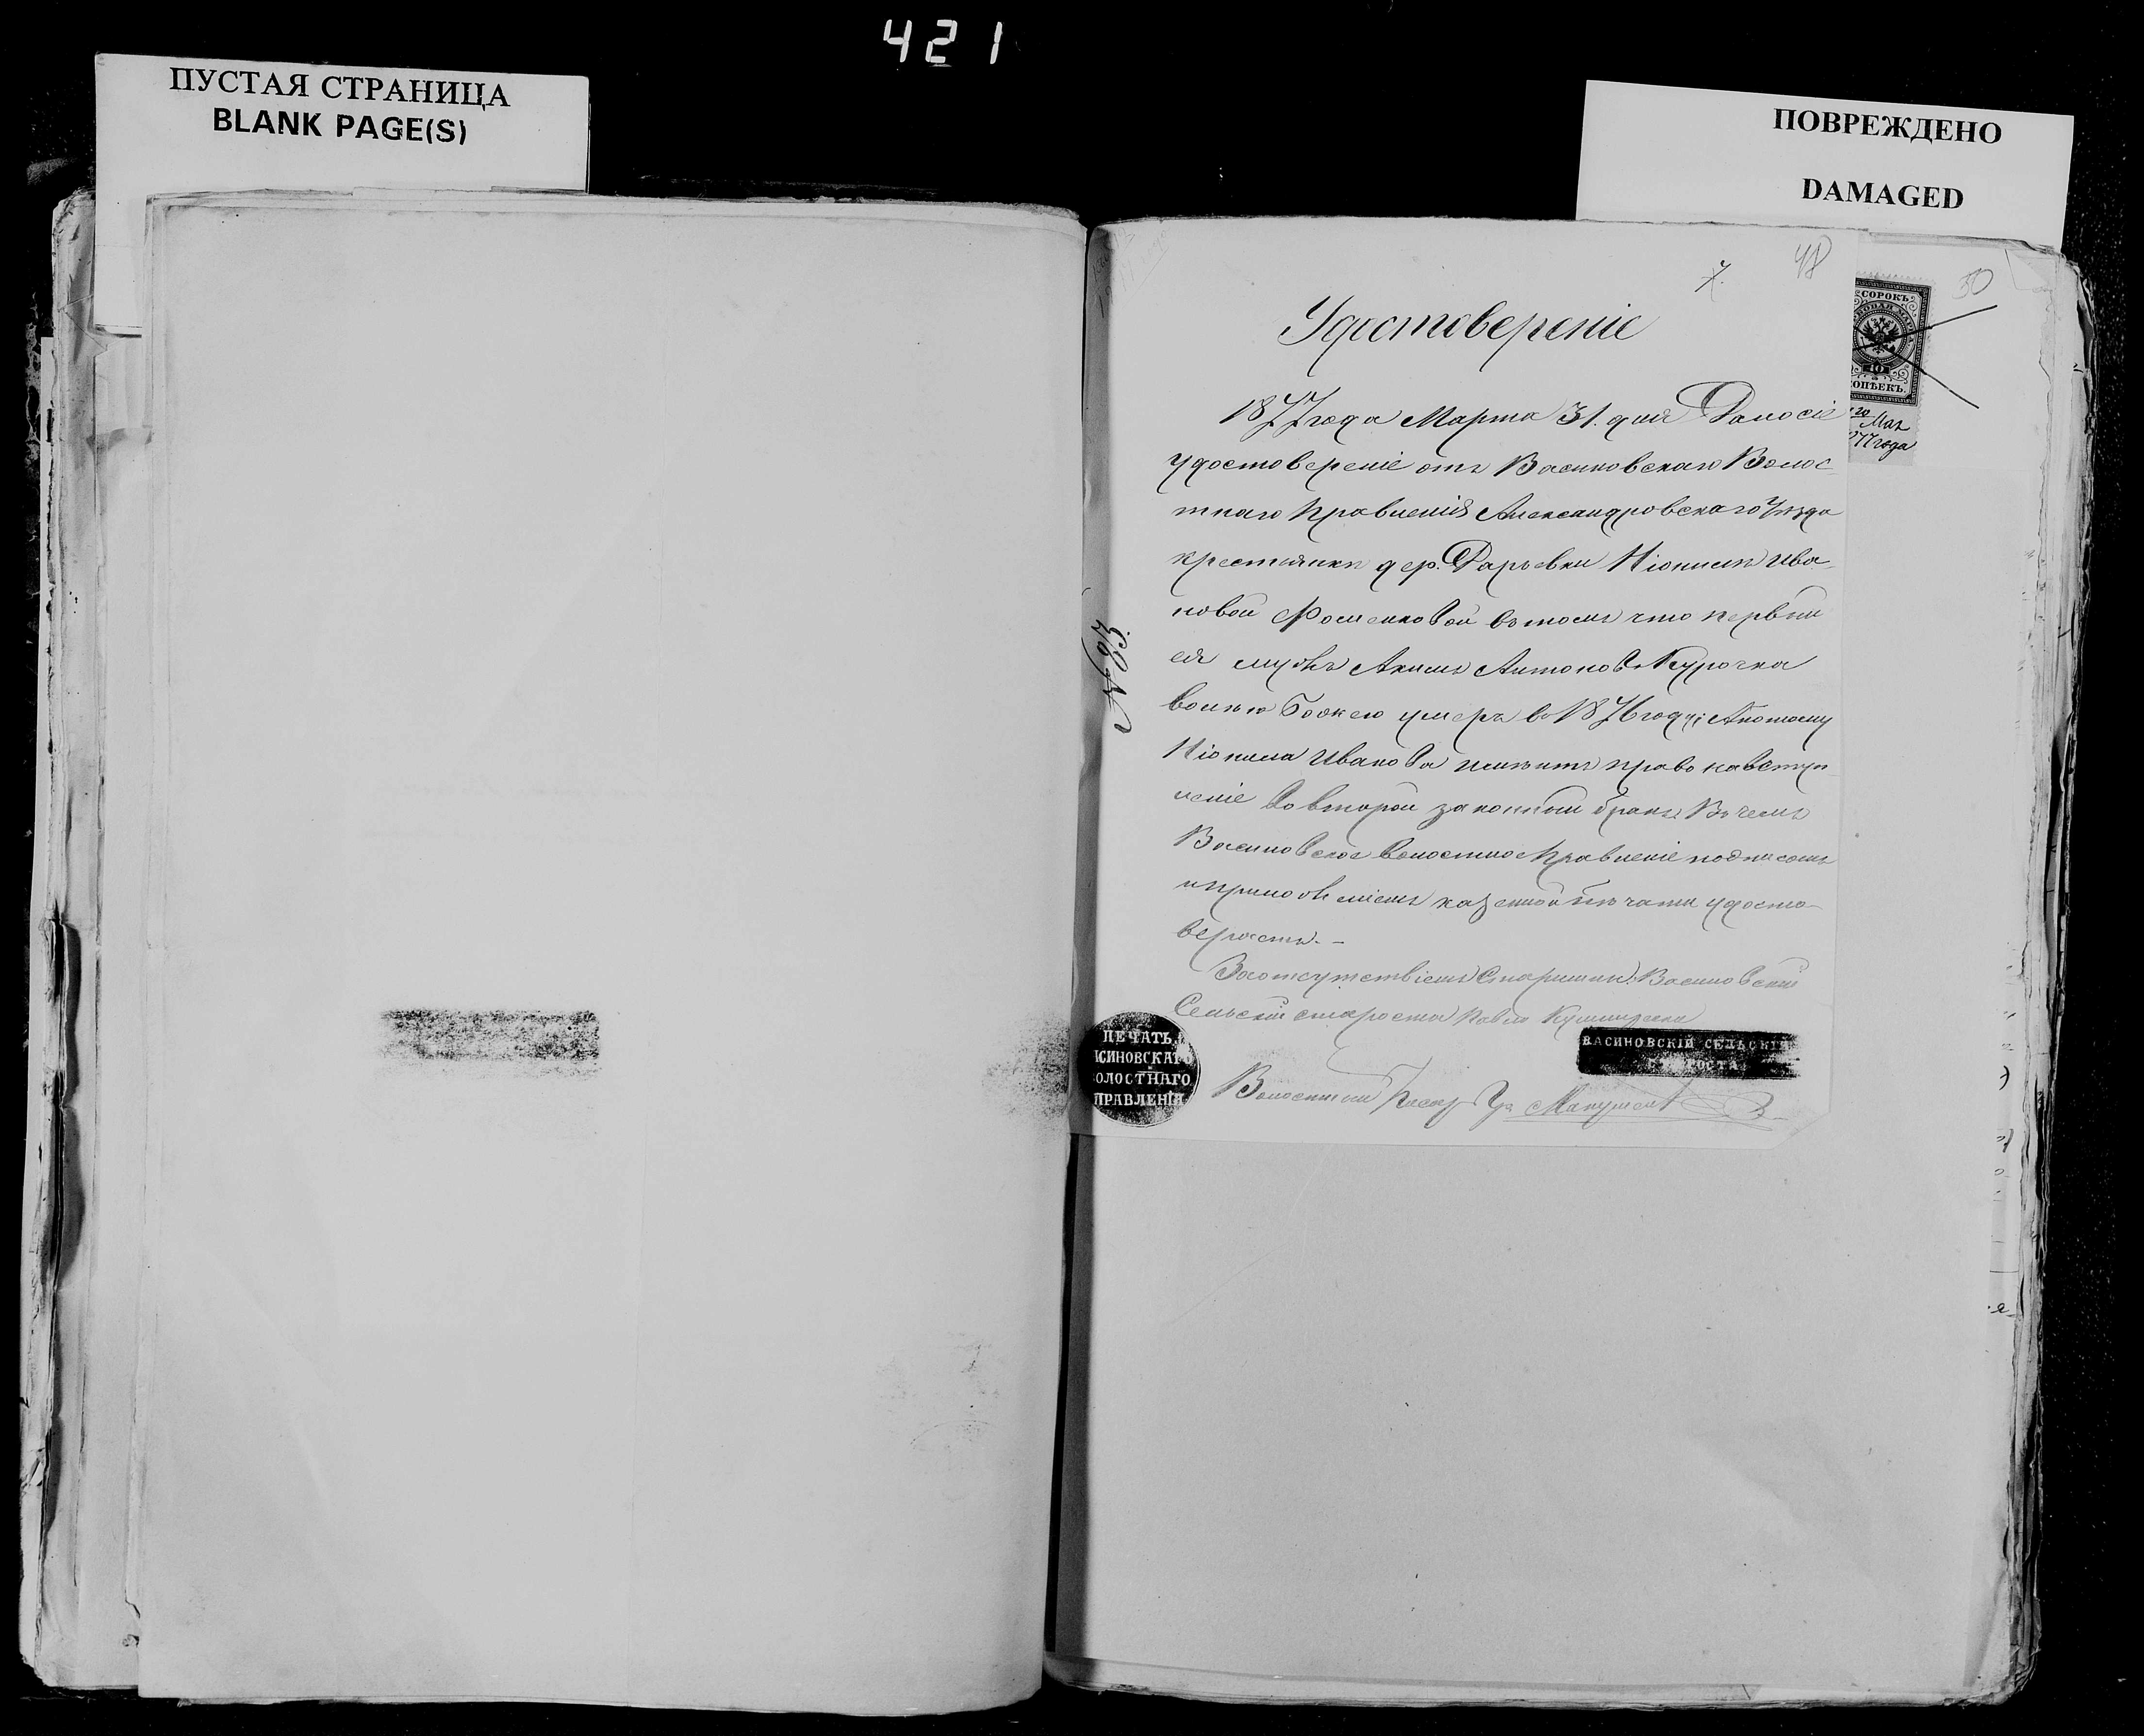 421
ПУСТАЯ СТРАНИЦА
BLANK PAGE(S)
ПОВРЕЖДЕНО
DAMAGED
7.
48
50
СОРОКЪ
40
КОПѢЕКЪ.
20 Мая
1877 года
Удостоверенiе
1877 года Марта 31. дня Дано сiе
удостоверенiе отъ Васиновскаго Волос
тнаго правленiя Александровскаго Уѣзда
крестьянкѣ дер. Дарьевки Нiонилѣ Ива
новой Фоменковой въ томъ что первый
ея мужъ Акимъ Антоновъ Курочка
волѣю Божею умеръ въ 1876 году; А потому
Нiонила Иванова имѣитъ право на вступ
ленiе во второй законный бракъ. Въ чемъ
Васиновское волостное Правленiе подписомъ
и приложенiемъ казенной пѣчати удосто
веряетъ. –
За отсутствiемъ Старшины: Васиновскiй
Сельскiй староста Павло
№ 93.
ПЕЧАТЬ
ВАСИНОВСКАГО
ВОЛОСТНАГО
ПРАВЛЕНIЯ
ВАСИНОВСКIЙ СЕЛЬСКIЙ
СТАРОСТА
Волостной Писарь